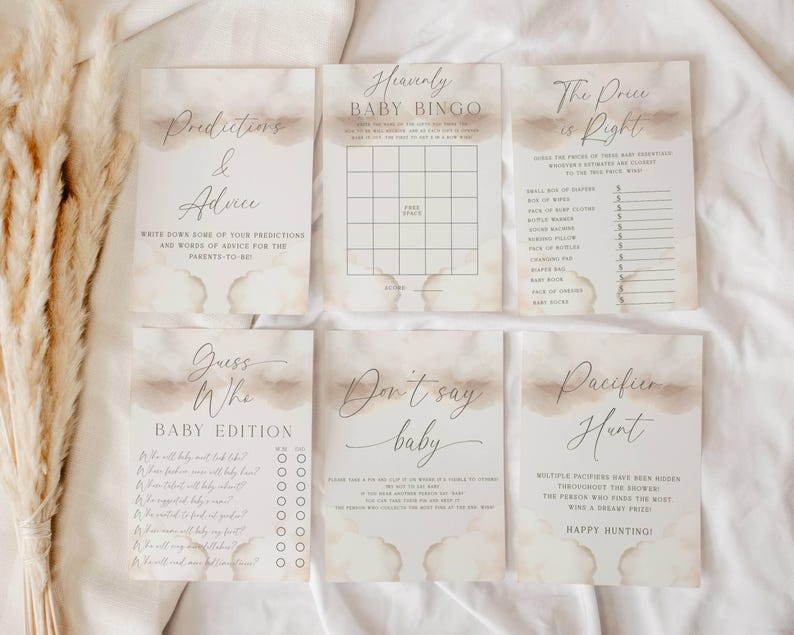 Predictions
&
Advice
WRITE DOWN SOME OF YOUR PREDICTIONS
AND WORDS OF ADVICE FOR THE
PARENTS-TO-BE!
Heavenly
BABY BINGO
WRITE THE NAME OF THE GIFTS YOU THINK THE
MOM TO BE WILL RECEIVE, AND AS EACH GIFT IS OPENED
MARK IT OUT. THE FIRST TO GET 5 IN A ROW WINS!
FREE
SPACE
SCORE:
The Price
is Right
GUESS THE PRICES OF THESE BABY ESSENTIALS!
WHOEVER'S ESTIMATES ARE CLOSEST
TO THE TRUE PRICE, WINS!
SMALL BOX OF DIAPERS $
BOX OF WIPES $
PACK OF BURP CLOTHS $
BOTTLE WARMER $
SOUND MACHINE $
NURSING PILLOW $
PACK OF BOTTLES $
CHANGING PAD $
DIAPER BAG $
BABY BOOK $
PACK OF ONESIES $
BABY SOCKS $
Guess
Who
BABY EDITION
MOM DAD
Who will baby most look like?
Whose fashion sense will baby have?
Whose talent will baby inherit?
Who suggested baby's name?
Who wanted to find out gender?
Whose name will baby say first?
Who will sing more lullabies?
Who will read more bedtime stories?
Don't say
baby
PLEASE TAKE A PIN AND CLIP IT ON WHERE IT'S VISIBLE TO OTHERS!
TRY NOT TO SAY BABY
IF YOU HEAR ANOTHER PERSON SAY "BABY"
YOU CAN TAKE THEIR PIN AND KEEP IT
THE PERSON WHO COLLECTS THE MOST PINS AT THE END, WINS!
Pacifier
Hunt
MULTIPLE PACIFIERS HAVE BEEN HIDDEN
THROUGHOUT THE SHOWER!
THE PERSON WHO FINDS THE MOST,
WINS A DREAMY PRIZE!
HAPPY HUNTING!